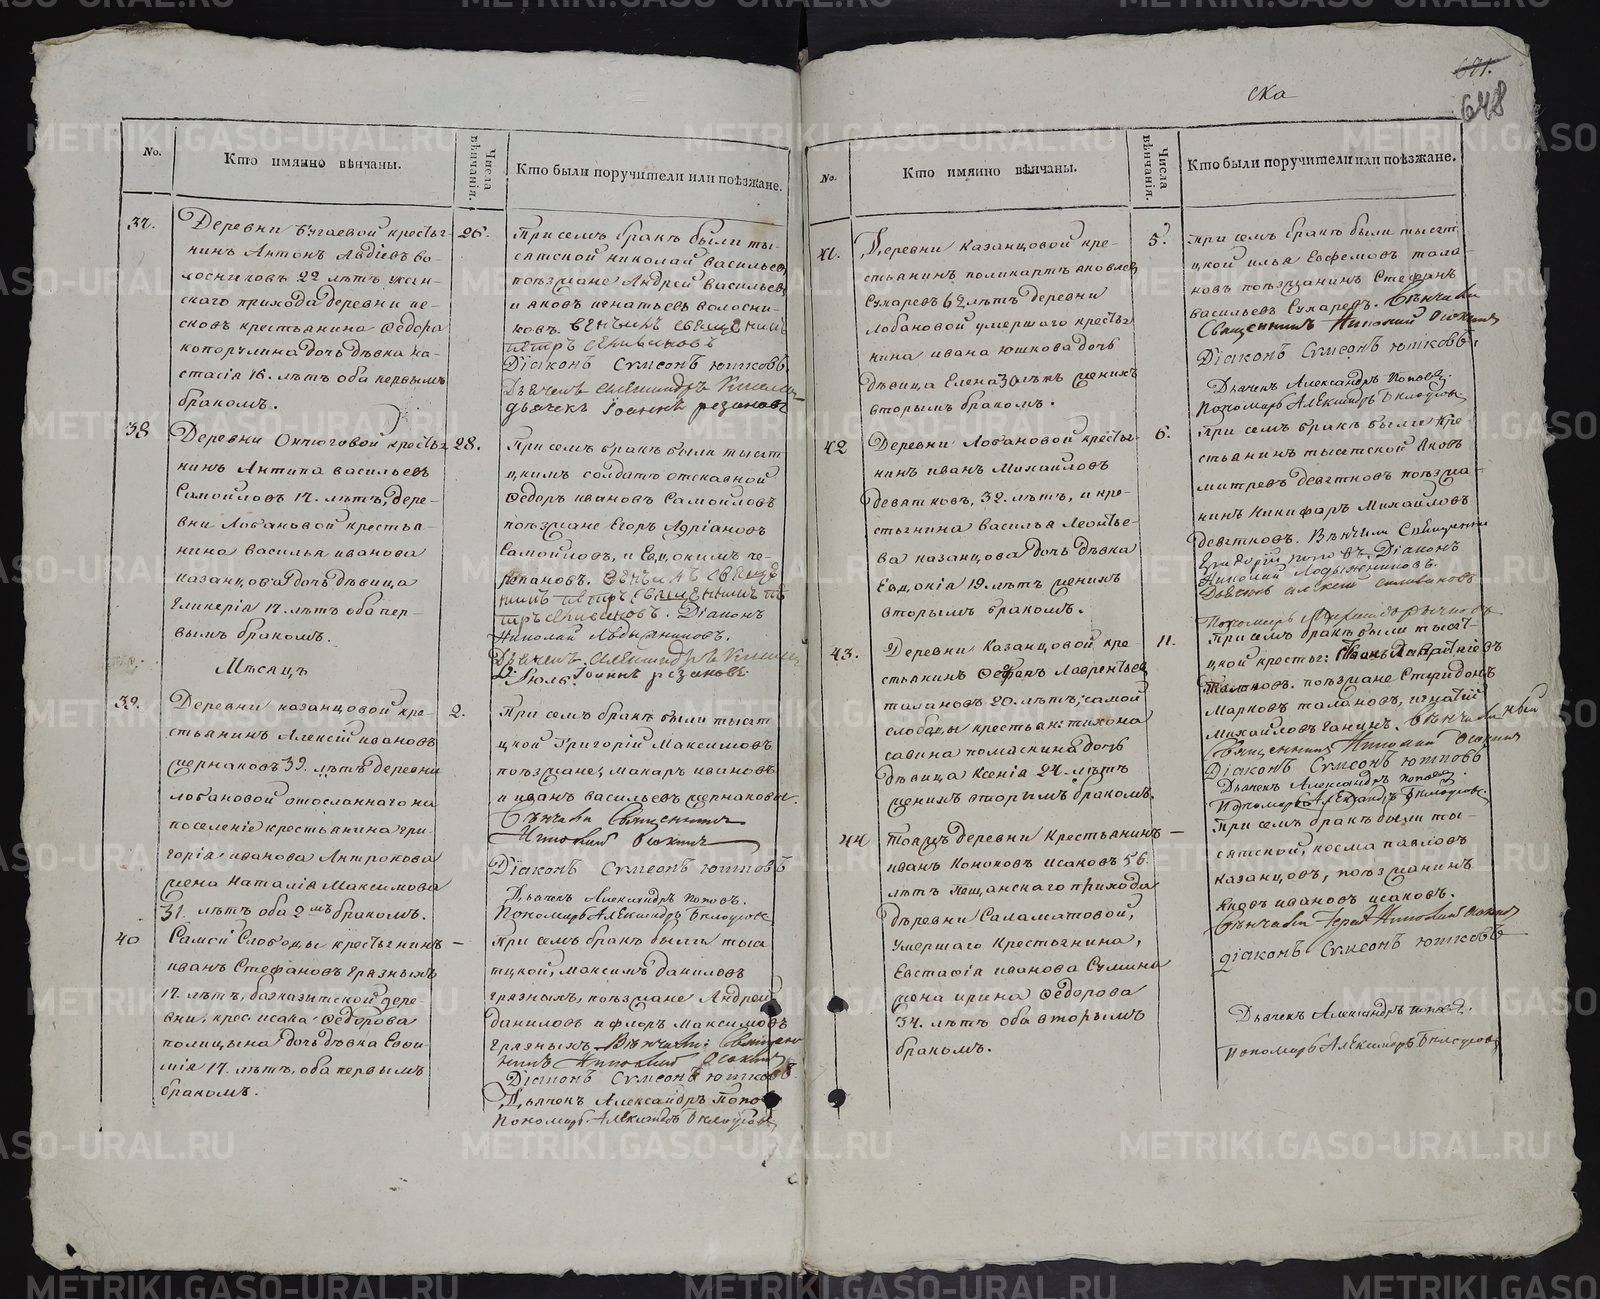 ска
681.
648
No.
Кто имянно вѣнчаны.
Числа вѣнчанія.
Кто были поручители или поѣзжане.
37.
Деревни Бугаевой крестья-
нинъ Антонъ Авдіевъ во-
лосниковъ 22 лѣтъ
скаго прихода деревни пе-
сковъ крестьянина Ѳедора
дочь дѣвка на-
стасія 16. лѣтъ оба первымъ
бракомъ.
26.
При семъ бракѣ были ты-
сятской николай васильевъ
поѣзжане Андрей васильевъ
и яковъ игнатьевъ волосни-
ковъ. Венчалъ священникъ
петръ селивановъ
Діаконъ Сумеонъ Ютковъ.
Дьячекъ Александръ
дьячекъ Іоаннъ резановъ
38
Деревни крестья-
нинъ Антипа васильевъ
Самойловъ 17. лѣтъ, дере-
вни Лобановой крестья-
нина василья иванова
казанцова дочь дѣвица
Гликерія 17. лѣтъ оба пер-
вымъ бракомъ.
28.
При семъ бракѣ были тысят
цкимъ солдатъ отставной
Ѳедоръ ивановъ Самойловъ
поѣзжане Егоръ Адріановъ
Самойловъ, и Евдокимъ че-
репановъ. Венчалъ свяще
нникъ петръ селивановъ. Діаконъ
Николай Лодыжниковъ.
Дьячекъ Александръ
Іоаннъ резановъ
Мѣсяцъ
Іюль.
39.
Деревни казанцовой кре-
стьянинъ Алексій ивановъ
чернаковъ 39. лѣтъ деревни
лобановой отосланнаго на
поселеніе крестьянина гри-
горія иванова Антропова
жена Наталія Максимова
31. лѣтъ оба 2мъ бракомъ.
2.
При семъ бракѣ были тысят
цкой Григорій Максимовъ
поѣзжане, макаръ ивановъ
и иванъ васильевъ чернаковы.
Вѣнчали Священникъ
Николай Осокинъ
Діаконъ Сумеонъ Ютковъ
Дьячекъ Александръ Поповъ.
Пономарь Александръ Белоусовъ
40
Самой Слободы крестьянинъ
иванъ Стефановъ грязныхъ
17. лѣтъ, базказитской дере-
вни, крес. исака Ѳедорова
полицына дочь дѣвка Евѳи-
мія 17. лѣтъ, оба первымъ
бракомъ.
При семъ бракѣ были тыся
тцкой, максимъ даниловъ
грязныхъ, поѣзжане Андрей
даниловъ и флоръ Максимовъ
грязныхъ. Вѣнчали: Священ
никъ Николай Осокинъ
Діаконъ Сумеонъ Ютковъ
Дьячекъ Александръ Попо
Пономарь Александръ Белоусовъ
No.
Кто имянно вѣнчаны.
Числа вѣнчанія.
Кто были поручители или поѣзжане.
41.
Деревни Казанцовой кре-
стьянинъ поликарпъ яковлевъ
Сухаревъ 62 лѣтъ деревни
лобановой умершаго крестья
нина ивана юшкова дочь
дѣвица Елена 30 лѣтъ женихъ
вторымъ бракомъ.
5.
При семъ бракѣ были тысят
цкой илья Евфемовъ тала-
новъ поѣзжанинъ Стефанъ
васильевъ Сухаревъ. Вѣнчали
Священникъ Николай Осокинъ
Діаконъ Сумеонъ Ютковъ.
Дьячекъ Александръ Поповъ.
Пономарь Александръ Белоусовъ
42
Деревни Лобановой крестья-
нинъ иванъ Михаиловъ
девятковъ, 32. лѣтъ, и кре-
стьянина василья Леонтье-
ва казанцова дочь дѣвка
Евдокія 19. лѣтъ женихъ
вторымъ бракомъ.
6.
При семъ бракѣ были кре
стьянинъ тысятской яковъ
митревъ девятковъ поѣзжа-
нинъ Никифаръ Михаиловъ
девятковъ. Вѣнчали Священни
поповъ. Діаконъ
Николай Лодыжниковъ.
Дьячекъ алексій селивановъ
Пономарь
43.
Деревни Казанцовой кре-
стьянинъ Стефанъ Лаврентьевъ
талановъ 20. лѣтъ, самой
слободы крестьян: тихона
савина помаскина дочь
дѣвица Ксенія 24. лѣтъ
женихъ вторымъ бракомъ.
11.
При семъ бракѣ были тысят-
цкой крестья: иванъ Лаврентіевъ
Талановъ. поѣзжане Спиридонъ
Марковъ талановъ, игнатій
Михайловъ ганинъ. Вѣнчали
Священникъ Николай Осокинъ
Діаконъ Сумеонъ Ютковъ
Дьячекъ Александръ поповъ.
Пономарь Александръ Белоусовъ
44
Тояжъ деревни Крестьянинъ
иванъ Кононовъ исаковъ 56.
лѣтъ прихода
деревни Саламатовой,
умершаго Крестьянина,
Евстафія иванова Сумина
жена ирина Ѳедорова
34. лѣтъ оба вторымъ
бракомъ.
При семъ бракѣ были ты-
сятской, косма павловъ
казанцовъ, поѣзжанинъ
яковъ ивановъ исаковъ.
Вѣнчали Іерей Николай Осокинъ
Діаконъ Сумеонъ Ютковъ
Дьячекъ Александръ поповъ.
Пономарь Александръ Белоусовъ
METRIKI.GASO-URAL.RU